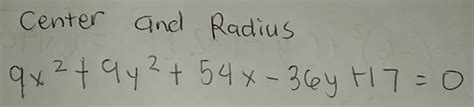 Center and Radius
9x² + 9y² + 54x - 36y + 17 = 0